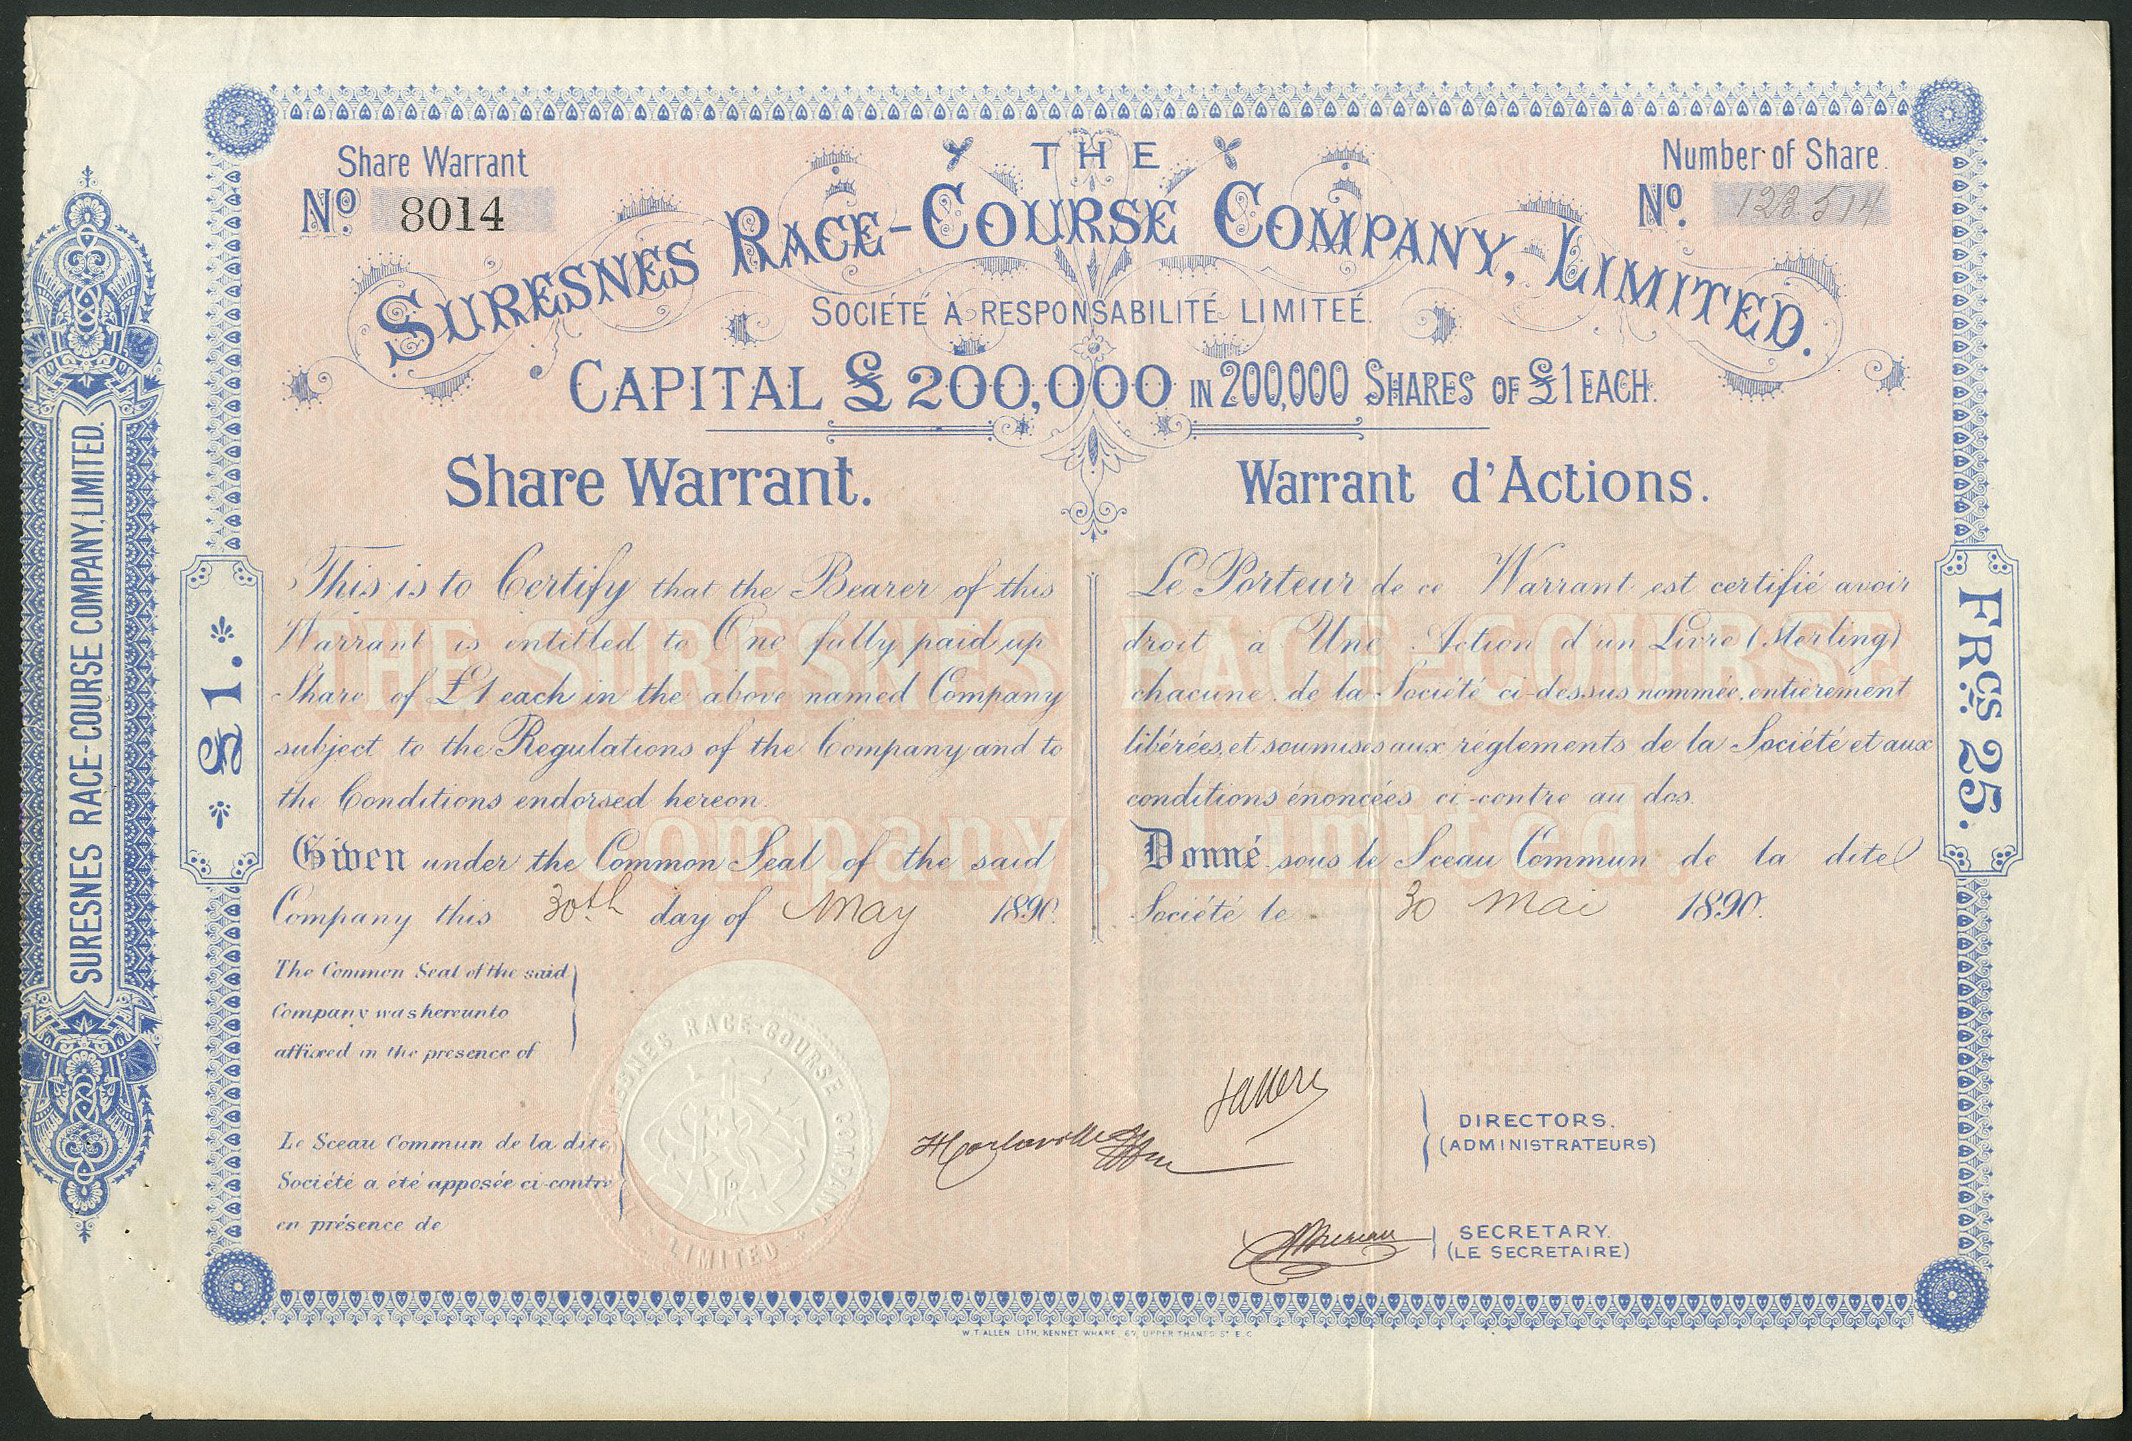 Share Warrant
No. 8014
Number of Share.
No. 123.514
THE
SURESNES RACE-COURSE COMPANY, LIMITED.
SOCIÉTÉ À RESPONSABILITÉ LIMITEÉ.
CAPITAL £200,000 IN 200,000 SHARES OF £1 EACH.
Share Warrant.
This is to Certify that the Bearer of this
Warrant is entitled to One fully paid up
Share of £1 each in the above named Company
subject to the Regulations of the Company and to
the Conditions endorsed hereon.
Given under the Common Seal of the said
Company this 30th day of May 1890.
Warrant d'Actions.
Le Porteur de ce Warrant est certifié avoir
droit à Une Action d'un Livre (sterling)
chacune de la Société ci-dessus nommée, entièrement
libérées, et soumises aux règlements de la Société et aux
conditions énoncées ci-contre au dos.
Donné sous le Sceau Commun de la dite
Société le 30 Mai 1890.
The Common Seal of the said
Company was hereunto
affixed in the presence of
Le Sceau Commun de la dite
Société a été apposée ci-contre
en présence de
SURESNES RACE-COURSE COMPANY
LIMITED
DIRECTORS.
(ADMINISTRATEURS)
SECRETARY.
(LE SECRETAIRE)
THE SURESNES RACE-COURSE
Company, Limited.
£1.
FRCS. 25.
SURESNES RACE-COURSE COMPANY, LIMITED.
W. T. ALLEN LITH. KENNET WHARF, 67, UPPER THAMES ST E.C.